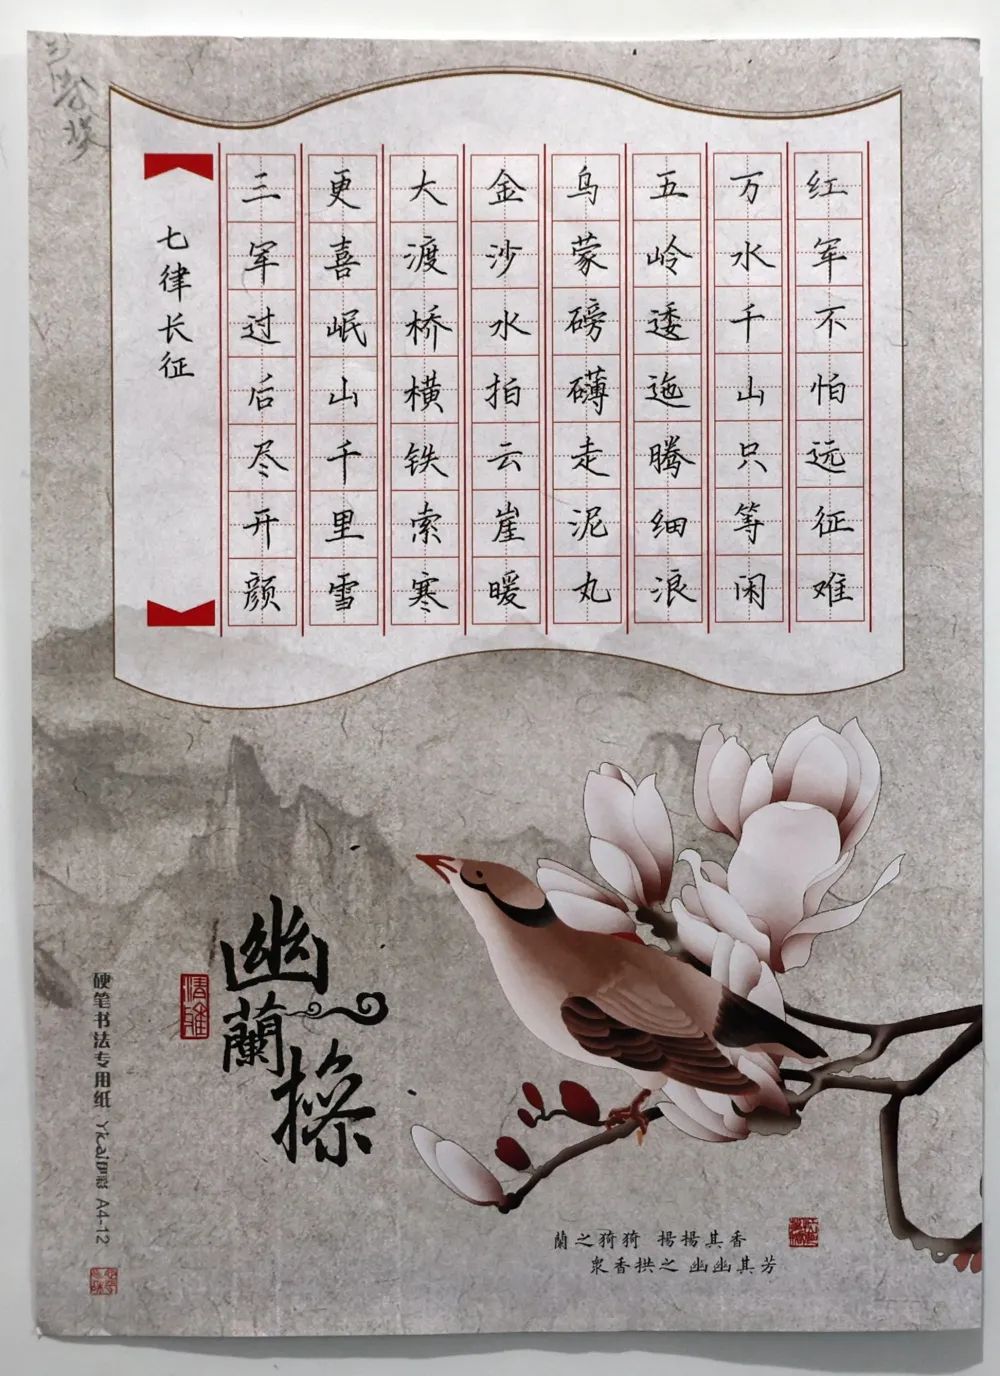 红军不怕远征难
万水千山只等闲
五岭逶迤腾细浪
乌蒙磅礴走泥丸
金沙水拍云崖暖
大渡桥横铁索寒
更喜岷山千里雪
三军过后尽开颜
七律长征
幽蘭操
清雅
硬笔书法专用纸 A4-12
蘭之猗猗 揚揚其香
眾香拱之 幽幽其芳